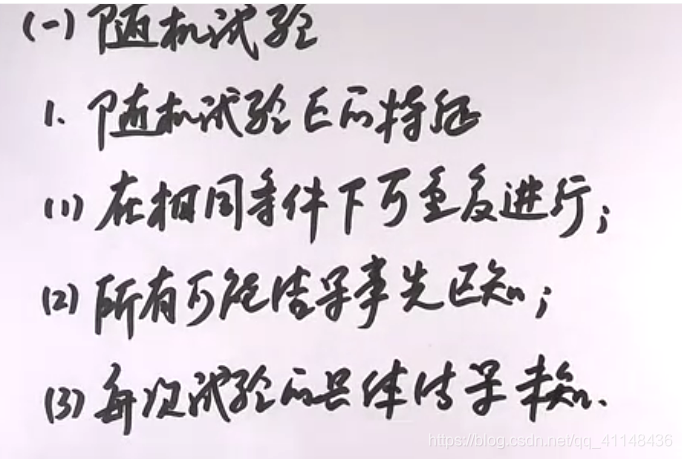 (一) 随机试验
1. 随机试验E的特征
(1) 在相同条件下可重复进行;
(2) 所有可能结果事先已知;
(3) 每次试验的具体结果未知.
https://blog.csdn.net/qq_41148436